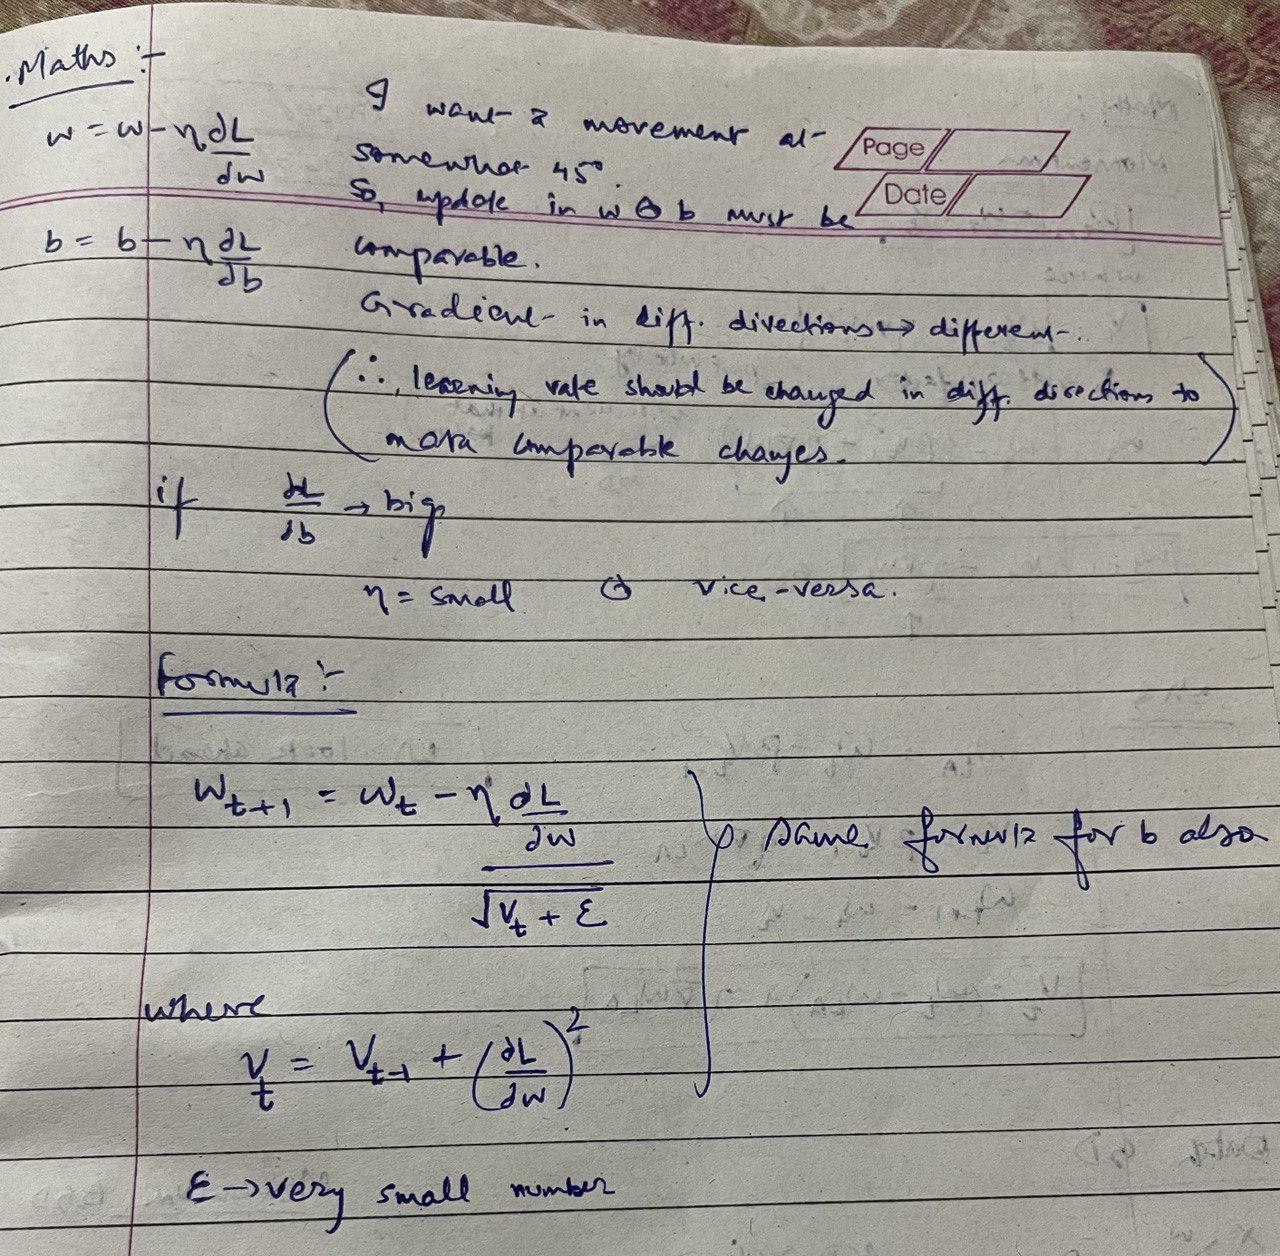 Maths :-
w = w - η ∂L/∂w
I want a movement at
somewhat 45°.
Page
Date
So, update in w & b must be
b = b - η ∂L/∂b
comparable.
Gradient in diff. directions → different.
(∴, learning rate should be changed in diff. directions to
make comparable changes.)
if ∂L/∂b → big
η = small & vice-versa.
formula :-
W_{t+1} = W_t - η ∂L/∂w / √(V_t + ε)
same formula for b also
where
V_t = V_{t-1} + (∂L/∂w)²
ε → very small number